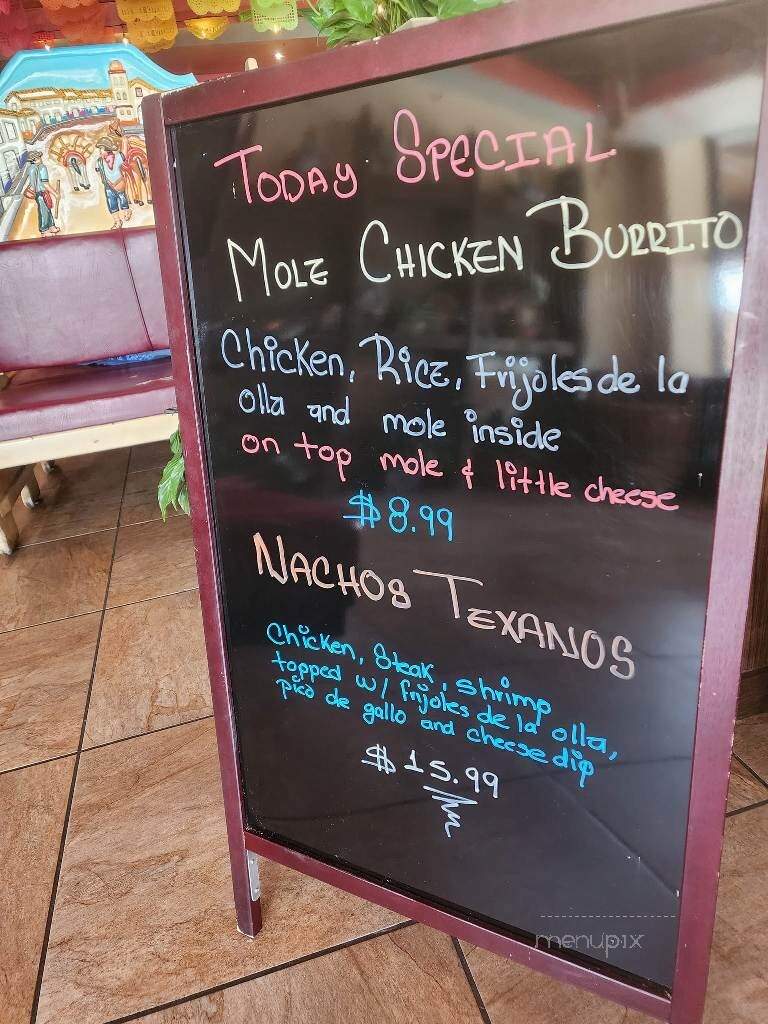 TODAY SPECIAL
MOLE CHICKEN BURRITO
Chicken, Rice, Frijoles de la
olla and mole inside
on top mole & little cheese
$8.99
NACHOS TEXANOS
Chicken, Steak, shrimp
topped w/ frijoles de la olla,
pico de gallo and cheese dip
$15.99
menupix